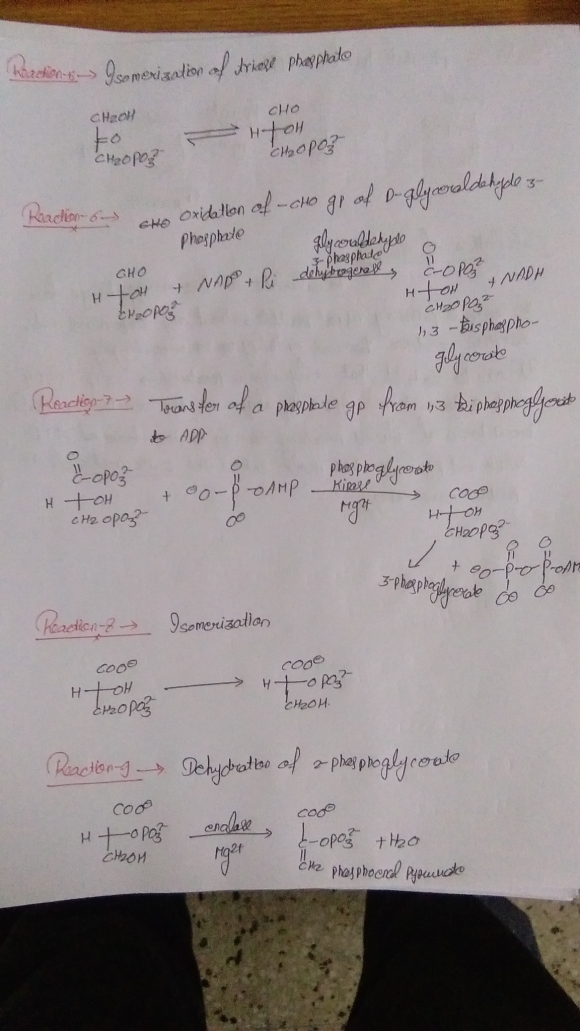 Reaction-5 → Isomerization of triose phosphate
CH2OH
C=O
CH2OPO3²⁻
⇌
CHO
H OH
CH2OPO3²⁻
Reaction-6 → CHO Oxidation of -CHO gp of D-glyceraldehyde 3-
phosphate
CHO
H OH
CH2OPO3²⁻
+ NAD⊕ + Pi
glyceraldehyde
3-phosphate
dehydrogenase
O
C-OPO3²⁻
H OH
CH2OPO3²⁻
+ NADH
1,3-bisphospho-
glycerate
Reaction-7 → Transfer of a phosphate gp from 1,3 biphosphoglycerate
to ADP
O
C-OPO3²⁻
H OH
CH2OPO3²⁻
+
O
⊖O-P-OAMP
O⊖
phosphoglycerate
kinase
Mg2+
COO⊖
H OH
CH2OPO3²⁻
3-phosphoglycerate
+
O O
⊖O-P-O-P-OAM
O⊖ O⊖
Reaction-8 → Isomerization
COO⊖
H OH
CH2OPO3²⁻
→
COO⊖
H OPO3²⁻
CH2OH
Reaction-9 → Dehydration of 2-phosphoglycerate
COO⊖
H OPO3²⁻
CH2OH
enolase
Mg2+
COO⊖
C-OPO3²⁻
CH2
+ H2O
Phosphoenol Pyruvate